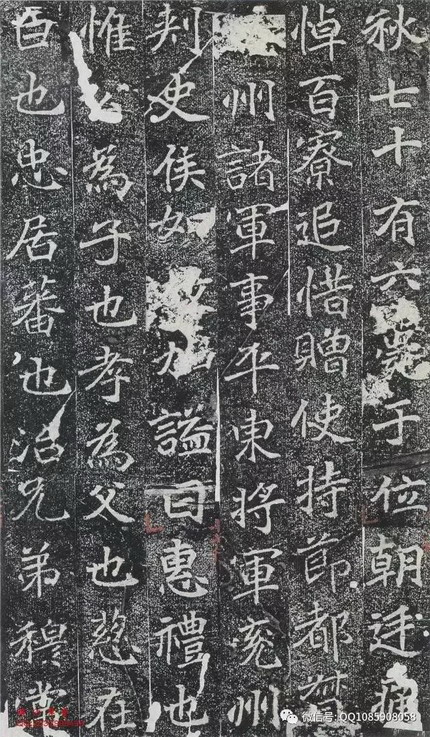 秋七十有六薨于位朝廷痛
悼百寮追惜贈使持節都督
州諸軍事平東將軍兖州
刺史侯如故加謚曰惠禮也
惟公為子也孝為父也慈在
臣也忠居蕃也治兄弟穆常
微信号: QQ1085908058